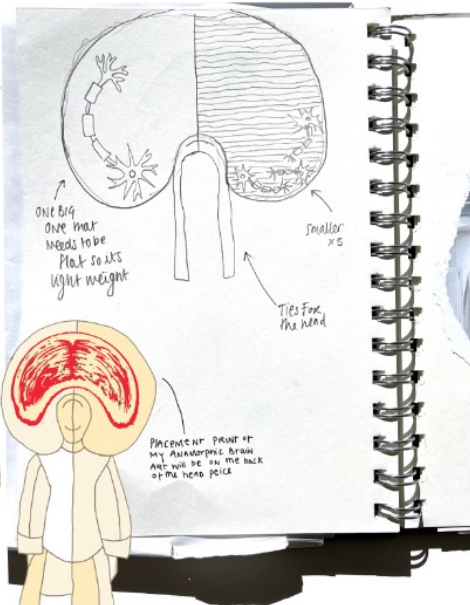 ONE BIG
One that
needs to be
flat so its
light weight
Smaller
x5
Ties For
the head
PLACEMENT PRINT OF
MY ANAMORPHIC BRAIN
ART WILL BE ON THE BACK
OF THE HEAD PEICE